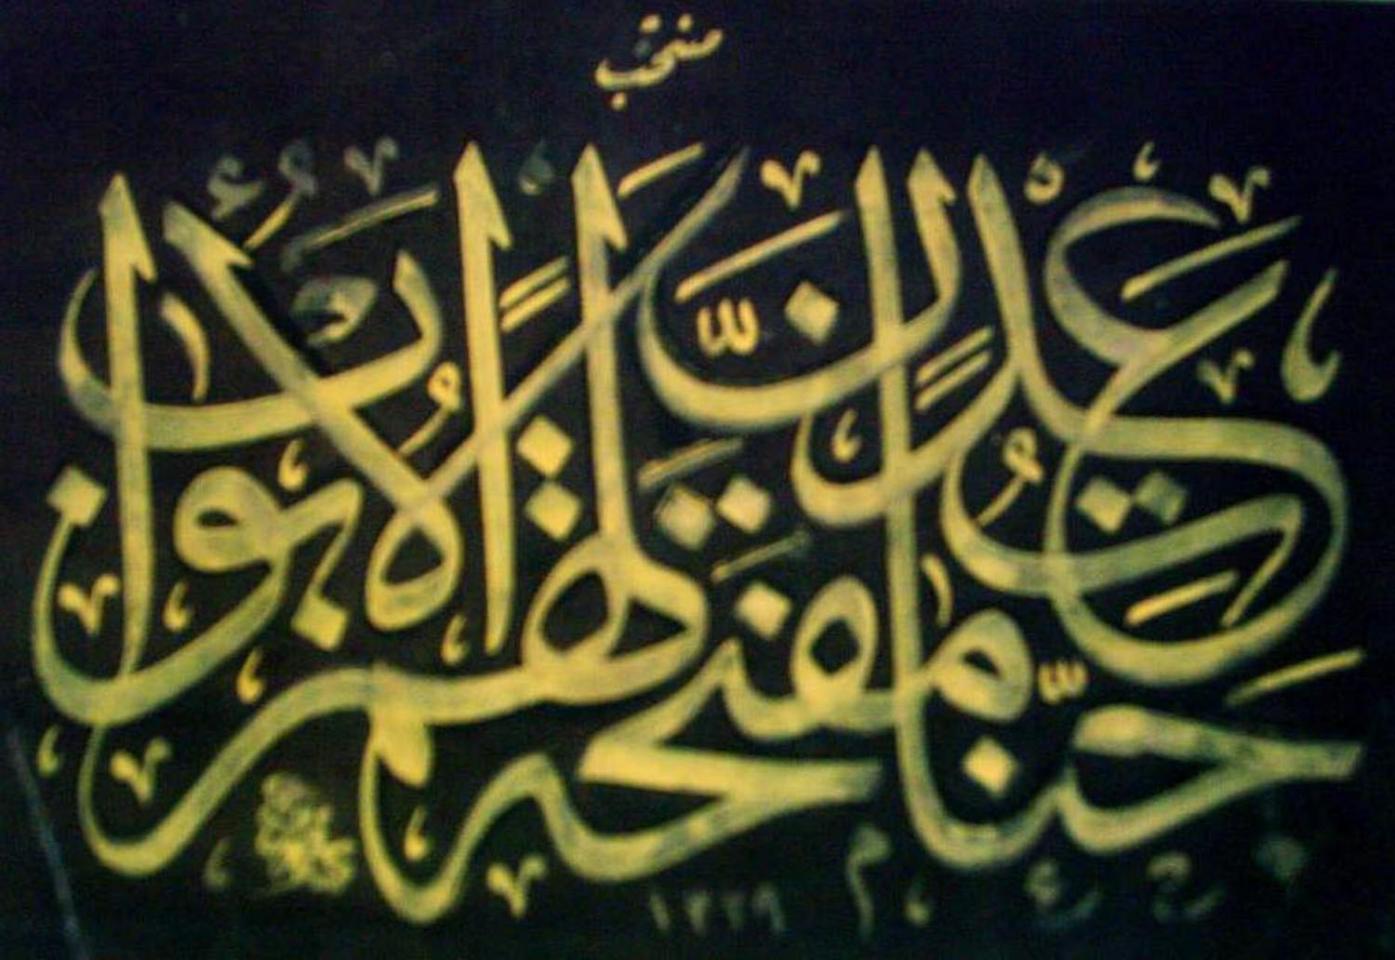 منتخب
جنات عدن مفتحة لهم الابواب
١٣٢٩